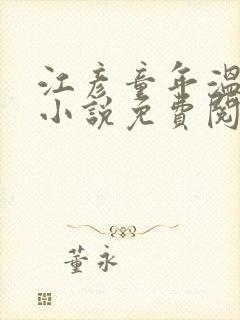 江彦童年溫
小說免費閱
董永